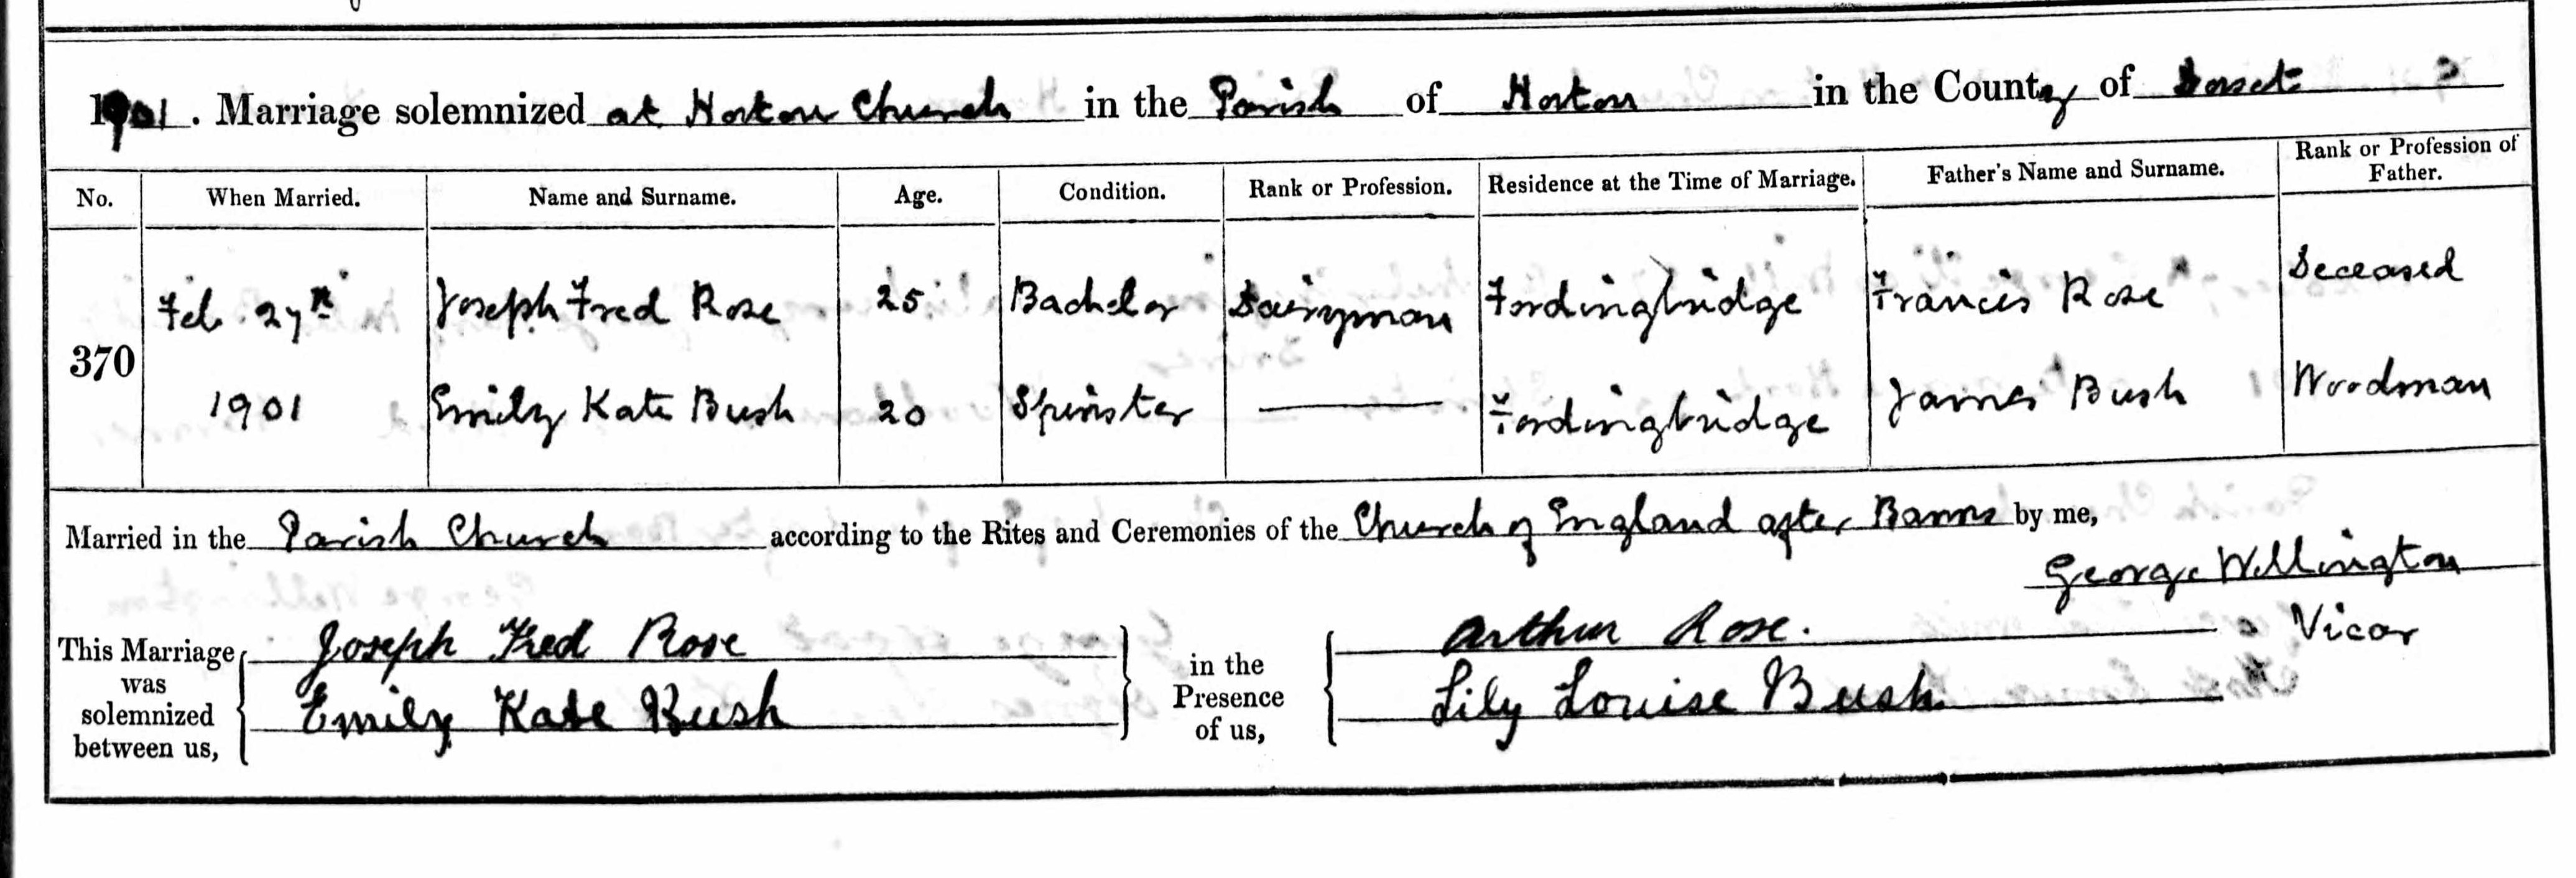 1901. Marriage solemnized at Horton Church in the Parish of Horton in the County of Dorset
No. When Married. Name and Surname. Age. Condition. Rank or Profession. Residence at the Time of Marriage. Father's Name and Surname. Rank or Profession of Father.
370
Feb. 27th Joseph Fred Rose 25 Bachelor Dairyman Fordingbridge Francis Rose Deceased
1901 Emily Kate Bush 20 Spinster — Fordingbridge James Bush Woodman
Married in the Parish Church according to the Rites and Ceremonies of the Church of England after Banns by me,
George Wellington
Vicar
This Marriage was solemnized between us,
Joseph Fred Rose
Emily Kate Bush
in the Presence of us,
Arthur Rose.
Lily Louise Bush